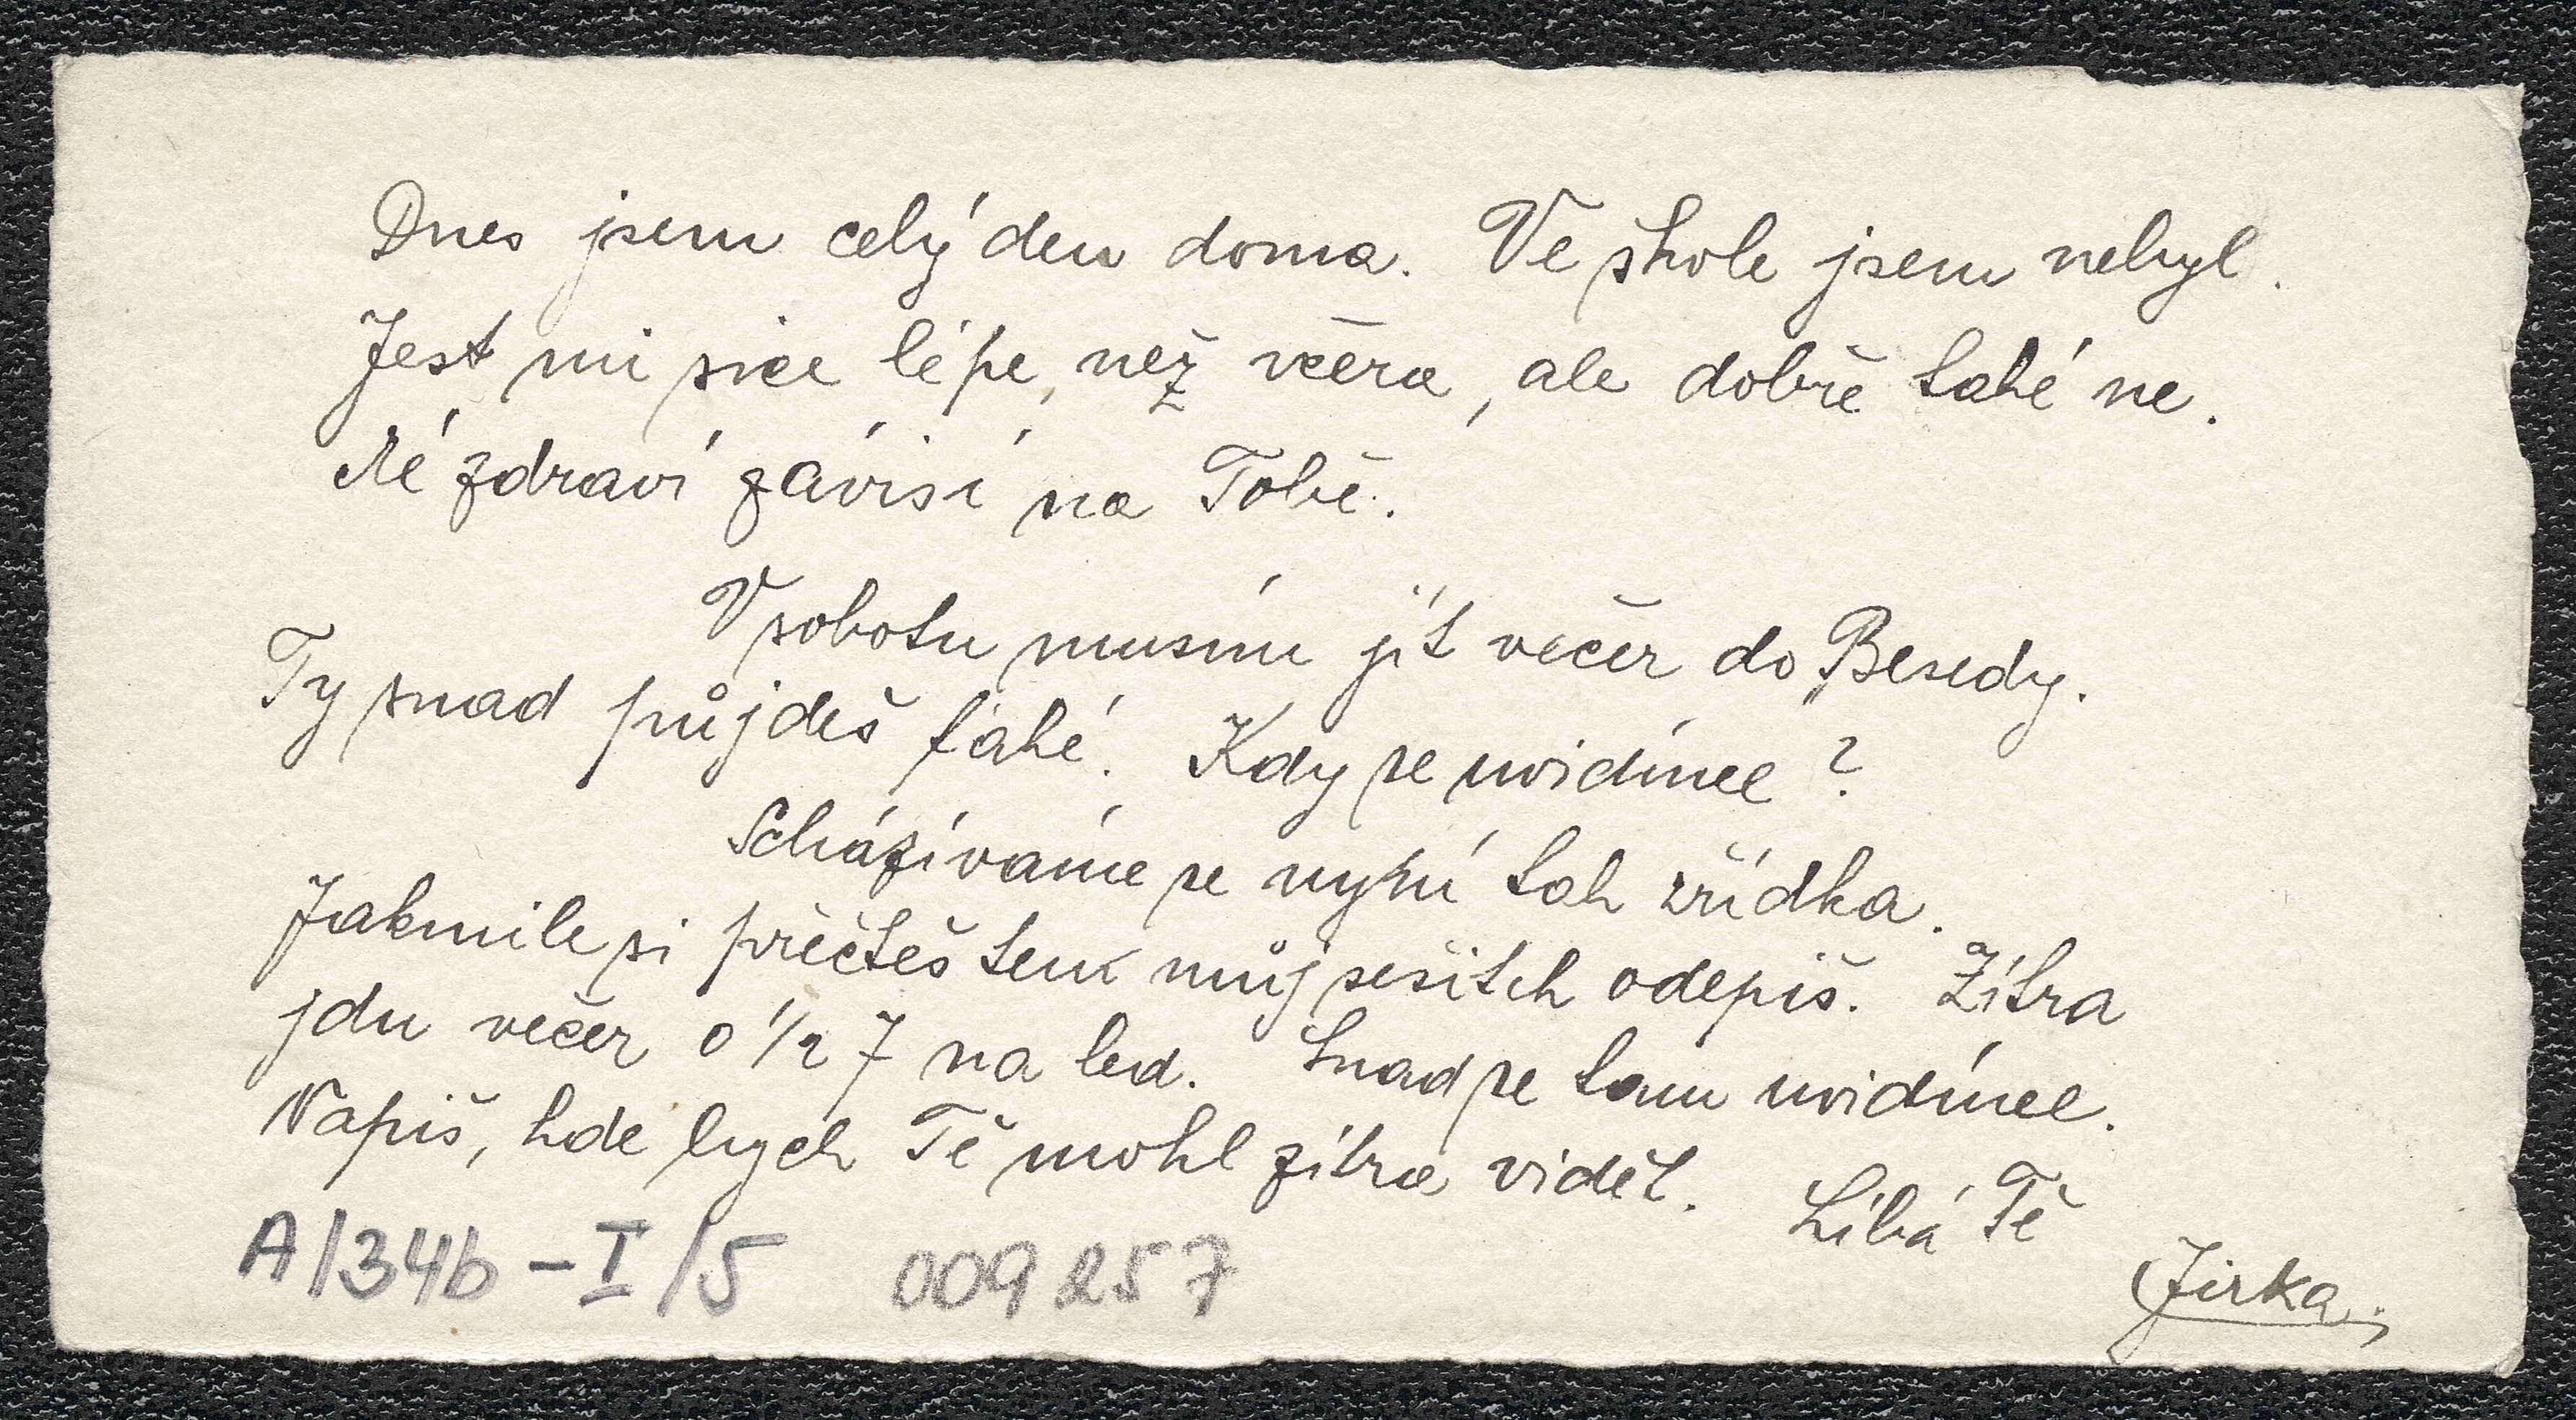 Dnes jsem celý den doma. Ve škole jsem nebyl.
Jest mi sice lépe, než včera, ale dobře také ne.
Mé zdraví závisí na Tobě.
V sobotu musím jít večer do Besedy.
Ty snad půjdeš také. Kdy se uvidíme?
Scházíváme se nyní tak zřídka.
Jakmile si přečteš tenk můj sešitek odepiš. Zítra
jdu večer o 1/2 7 na led. Snad se tam uvidíme.
Napiš, kde bych Tě mohl zítra vidět. Líbá Tě
Jirka.
A/34b-I/5 009257